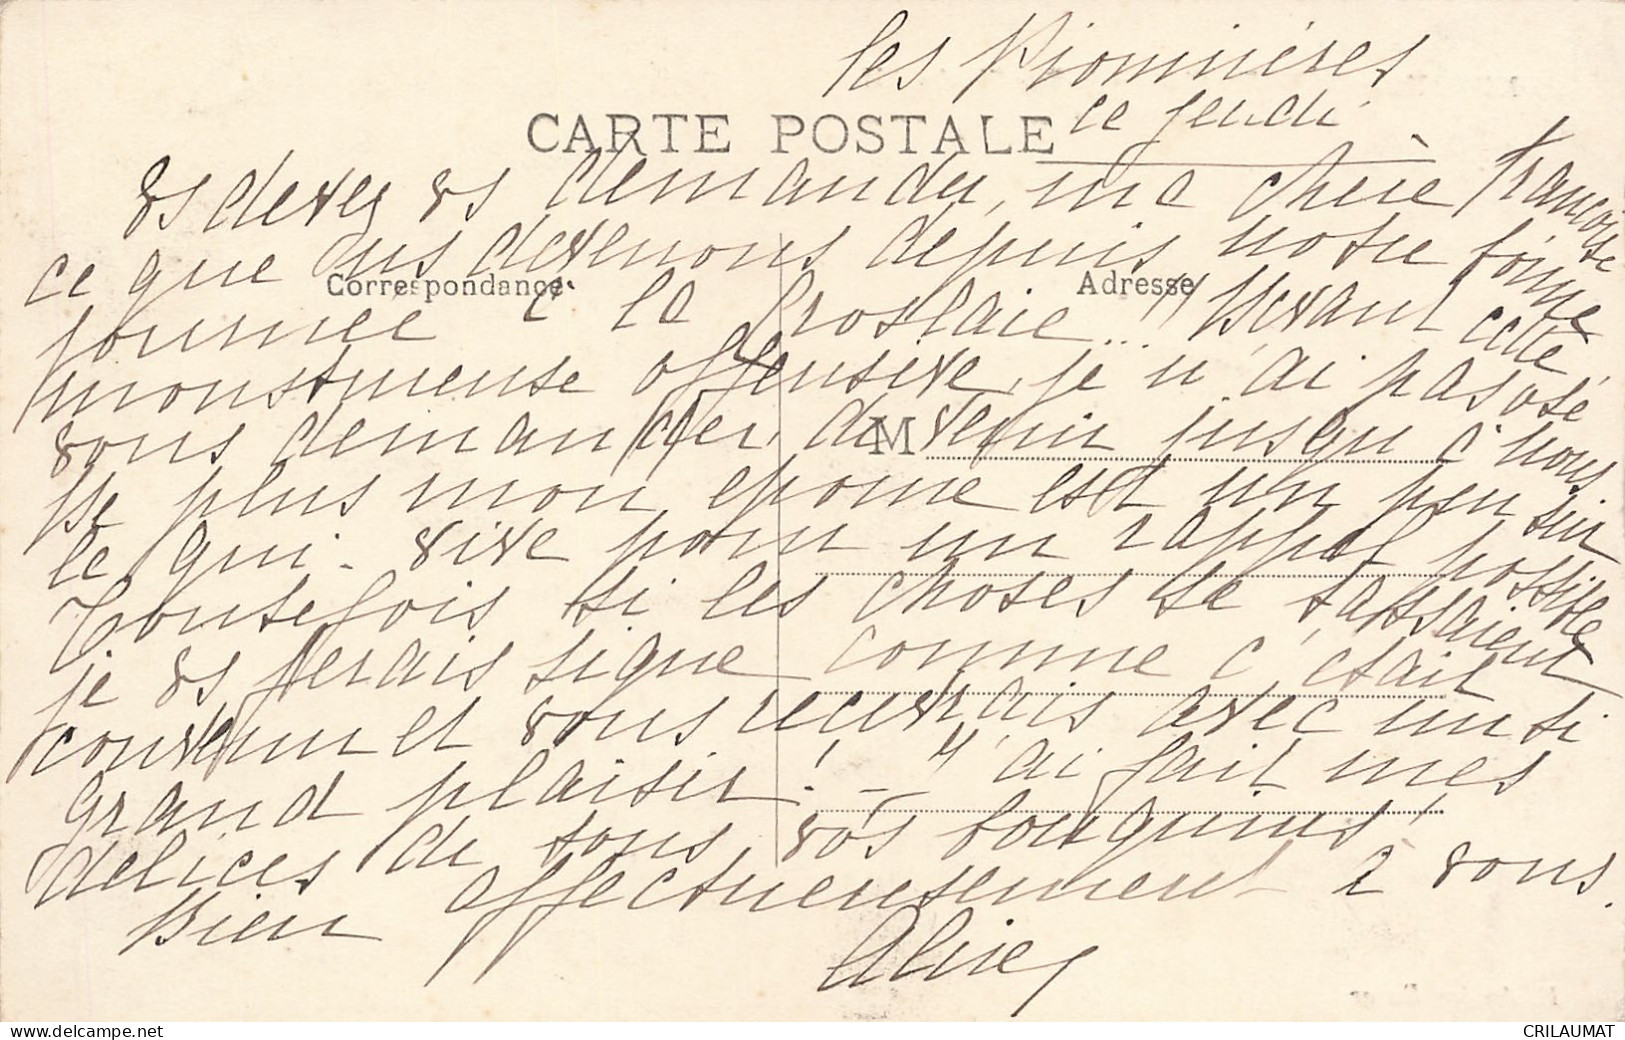 Les Pionnières
ce jeudi
CARTE POSTALE
vs devez vs demander, ma chère Françoise
ce que ns devenons depuis notre bonne
Correspondance
Adresse
journée à la Croslaie...!! Devant cette
monstrueuse offensive, je n'ai pas osé
vous demander de venir jusqu'à nous.
M
De plus mon epoux est un peu sur
le qui-vive pour un rappel possible
Toutefois si les choses se tassaient
je vs ferais signe comme c'était
convenu et vous recevrais avec un si
grand plaisir! - J'ai fait mes
délices de tous vos bouquins!
Bien affectueusement à vous.
CRILAUMAT
www.delcampe.net